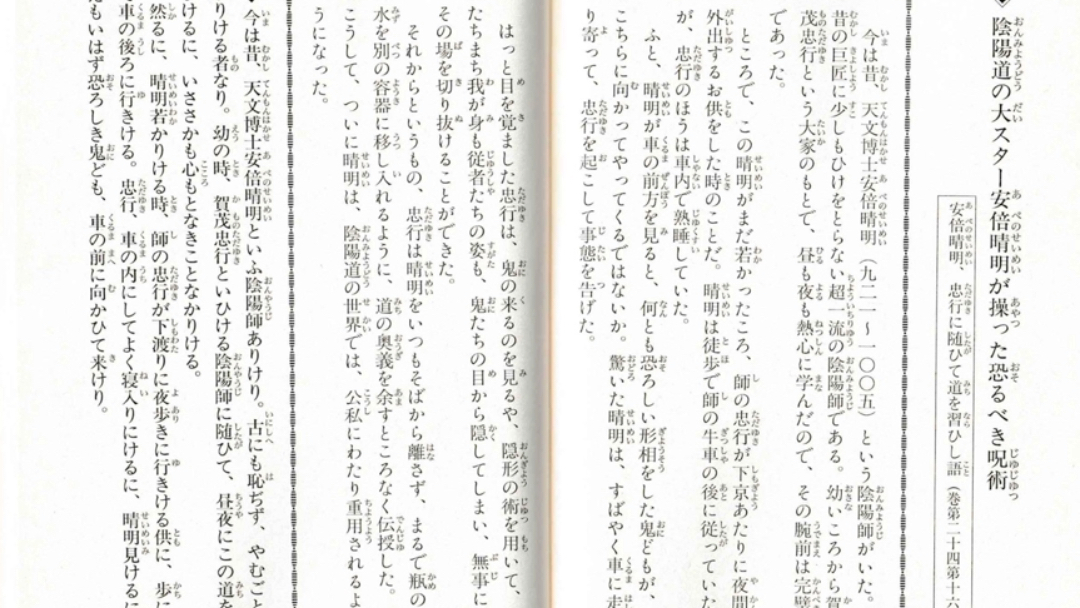 陰陽道の大スター安倍晴明が操った恐るべき呪術
安倍晴明、忠行に随ひて道を習ひし語（巻第二十四第十六
今は昔、天文博士安倍晴明（九二一～一〇〇五）という陰陽師がいた。
昔の巨匠に少しもひけをとらない超一流の陰陽師である。幼いころから賀
茂忠行という大家のもとで、昼も夜も熱心に学んだので、その腕前は完璧
であった。
ところで、この晴明がまだ若かったころ、師の忠行が下京あたりに夜間
外出するお供をした時のことだ。晴明は徒歩で師の牛車の後に従ってい
が、忠行のほうは車内で熟睡していた。
ふと、晴明が車の前方を見ると、何とも恐ろしい形相をした鬼どもが、
こちらに向かってやってくるではないか。驚いた晴明は、すばやく車に走
り寄って、忠行を起こして事態を告げた。
はっと目を覚ました忠行は、鬼の来るのを見るや、隠形の術を用いて、
たちまち我が身も従者たちの姿も、鬼たちの目から隠してしまい、無事に
その場を切り抜けることができた。
それからというもの、忠行は晴明をいつもそばから離さず、まるで瓶の
水を別の容器に移し入れるように、道の奥義を余すところなく伝授した。
こうして、ついに晴明は、陰陽道の世界では、公私にわたり重用されるよ
うになった。
今は昔、天文博士安倍晴明といふ陰陽師ありけり。古にも恥ぢず、やむご
りける者なり。幼の時、賀茂忠行といひける陰陽師に随ひて、昼夜にこの道を
けるに、いささかも心もとなきことなかりける。
然るに、晴明若かりける時、師の忠行が下渡りに夜歩きに行きける供に、歩に
車の後ろに行きける。忠行、車の内にしてよく寝入りにけるに、晴明見けるに
もいはず恐ろしき鬼ども、車の前に向かひて来けり。